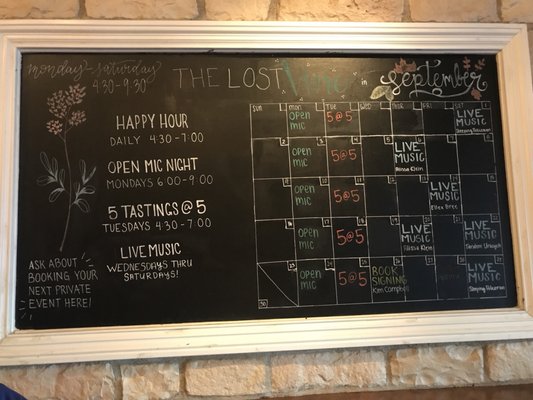 Monday-Saturday
4:30-9:30
THE LOST Vine in September
HAPPY HOUR
DAILY 4:30-7:00
OPEN MIC NIGHT
MONDAYS 6:00-9:00
5 TASTINGS @ 5
TUESDAYS 4:30-7:00
LIVE MUSIC
WEDNESDAYS THRU
SATURDAYS!
ASK ABOUT
BOOKING YOUR
NEXT PRIVATE
EVENT HERE!
SUN MON TUE WED THR FRI SAT
OPEN MIC
5@5
LIVE MUSIC
OPEN MIC
5@5
LIVE MUSIC
OPEN MIC
5@5
LIVE MUSIC
OPEN MIC
5@5
LIVE MUSIC
LIVE MUSIC
OPEN MIC
5@5
BOOK SIGNING
Ken Campbell
LIVE MUSIC
30